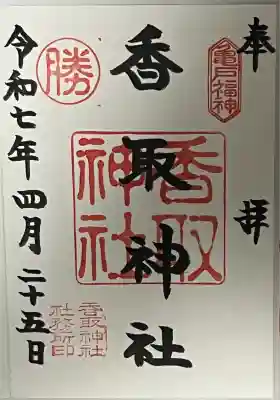 奉拝
亀戸福神
香取神社
香取神社
勝
香取神社
社務所印
令和七年四月二十五日